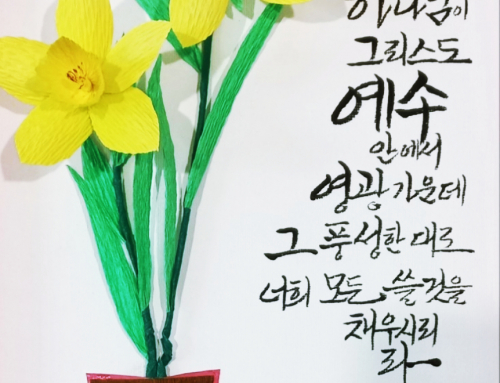 하나님이
그리스도
예수
안에서
영광 가운데
그 풍성한 대로
너희 모든 쓸 것을
채우시리
라